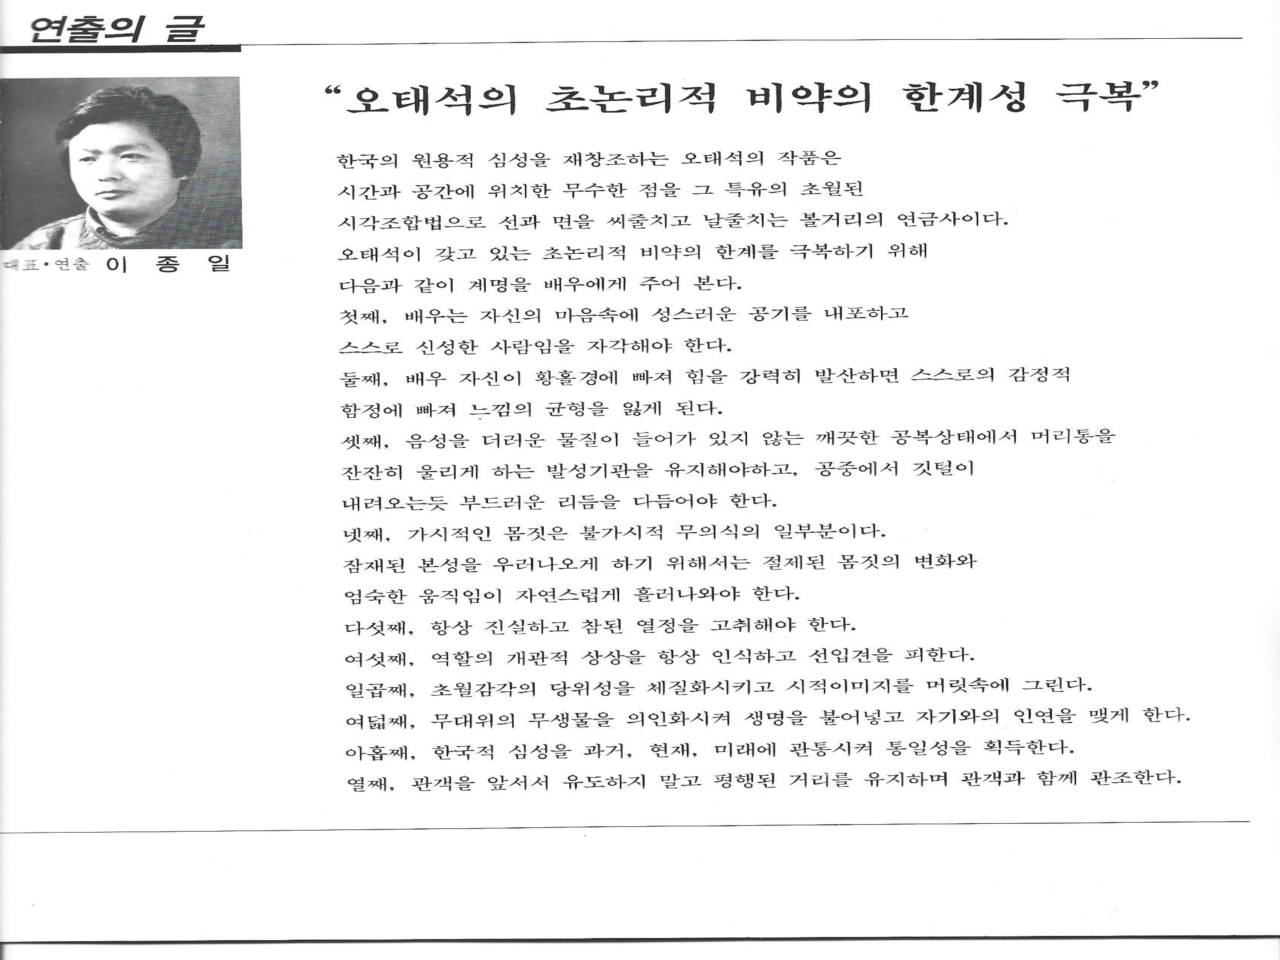 연출의 글
대표·연출 이 종 일
“오태석의 초논리적 비약의 한계성 극복”
한국의 원용적 심성을 재창조하는 오태석의 작품은
시간과 공간에 위치한 무수한 점을 그 특유의 초월된
시각조합법으로 선과 면을 씨줄치고 날줄치는 볼거리의 연금사이다.
오태석이 갖고 있는 초논리적 비약의 한계를 극복하기 위해
다음과 같이 계명을 배우에게 주어 본다.
첫째, 배우는 자신의 마음속에 성스러운 공기를 내포하고
스스로 신성한 사람임을 자각해야 한다.
둘째, 배우 자신이 황홀경에 빠져 힘을 강력히 발산하면 스스로의 감정적
함정에 빠져 느낌의 균형을 잃게 된다.
셋째, 음성을 더러운 물질이 들어가 있지 않는 깨끗한 공복상태에서 머리통을
잔잔히 울리게 하는 발성기관을 유지해야하고, 공중에서 깃털이
내려오는듯 부드러운 리듬을 다듬어야 한다.
넷째, 가시적인 몸짓은 불가시적 무의식의 일부분이다.
잠재된 본성을 우러나오게 하기 위해서는 절제된 몸짓의 변화와
엄숙한 움직임이 자연스럽게 흘러나와야 한다.
다섯째, 항상 진실하고 참된 열정을 고취해야 한다.
여섯째, 역할의 개관적 상상을 항상 인식하고 선입견을 피한다.
일곱째, 초월감각의 당위성을 체질화시키고 시적이미지를 머릿속에 그린다.
여덟째, 무대위의 무생물을 의인화시켜 생명을 불어넣고 자기와의 인연을 맺게 한다.
아홉째, 한국적 심성을 과거, 현재, 미래에 관통시켜 통일성을 획득한다.
열째, 관객을 앞서서 유도하지 말고 평행된 거리를 유지하며 관객과 함께 관조한다.